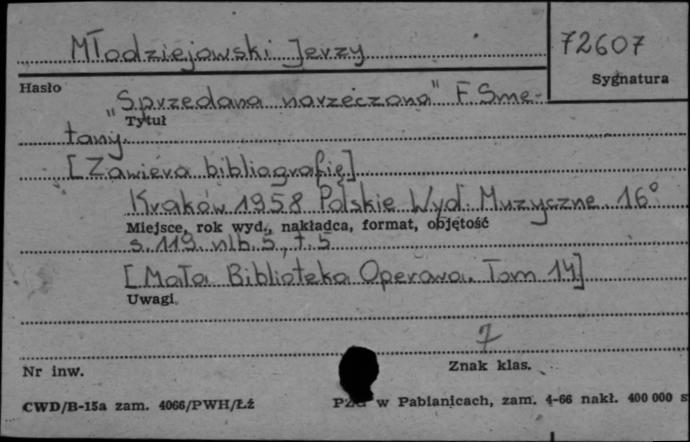 Młodziejowski Jerzy
72607
Hasło
Sygnatura
"Sprzedana narzeczona" F. Sme-
Tytuł
tany.
[Zawiera bibliografię]
Kraków 1958 Polskie Wyd. Muzyczne. 16°
Miejsce, rok wyd., nakładca, format, objętość
s. 119. nlb. 5, t. 5
[Mała Biblioteka Operowa. Tom 14]
Uwagi
7
Nr inw.
Znak klas.
CWD/B-15a zam. 4066/PWH/Łź
w Pabianicach, zam. 4-66 nakł. 400 000 s